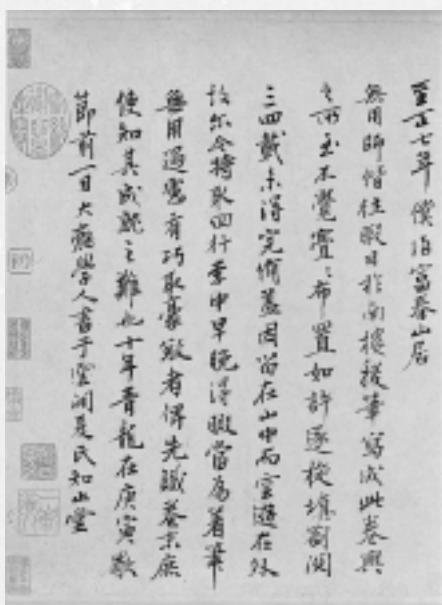 至正七年僕歸富春山居
無用師偕往暇日於南樓援筆寫成此卷興
之所至不覺亹亹布置如許逐旋填劄閱
三四載未得完備蓋因留在山中而雲遊在外
故尔今特取回行李中早晚得暇當為着筆
無用過慮有巧取豪敓者俾先識卷末庶
使知其成就之難也十年青龍在庚寅歜
節前一日大癡學人書于雲間夏氏知止堂